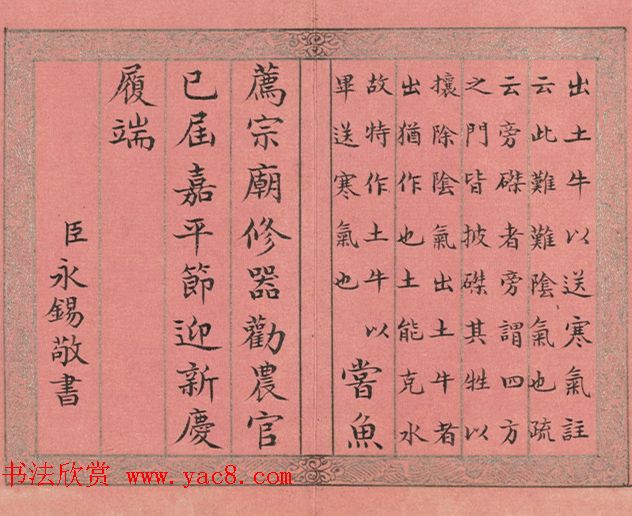 出土牛以送寒氣註
云此難難陰氣也疏
云旁磔者旁謂四方
之門皆披磔其牲以
攘除陰氣出土牛者
出猶作也土能克水
故特作土牛以
畢送寒氣也
嘗魚
薦宗廟修器勸農官
已屆嘉平節迎新慶
履端
臣永錫敬書
书法欣赏 www.yac8.com